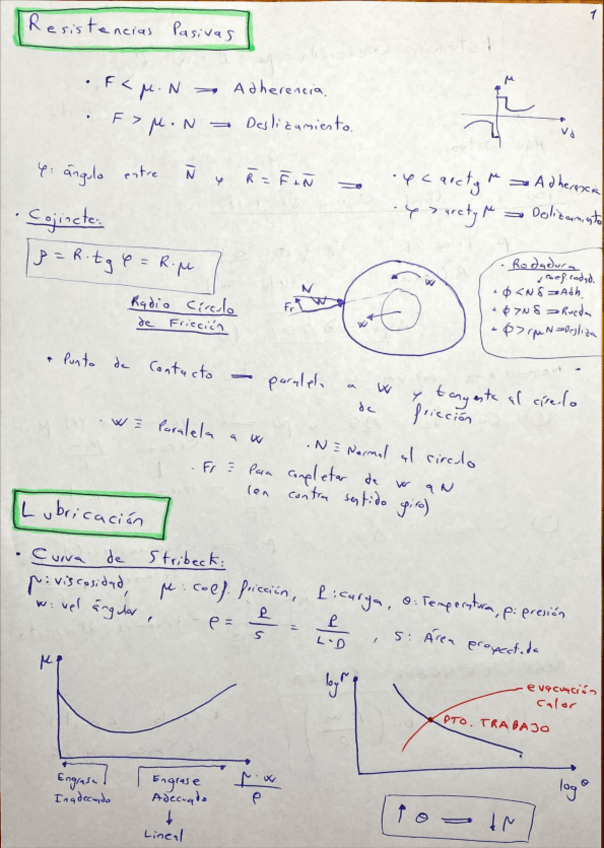 1
Resistencias Pasivas
· F < μ · N ⟹ Adherencia.
· F > μ · N ⟹ Deslizamiento.
μ
Vd
φ: ángulo entre N̄ y R̄ = F̄ + N̄ ⟹
· φ < arctg μ ⟹ Adherencia
· φ > arctg μ ⟹ Delizamiento
· Cojinete:
ρ = R · tg φ = R · μ
Radio Círculo
de Fricción
N
W
Fr
W
W
· Rodadura
· φ < N δ ⟹ Adh.
· φ > N δ ⟹ Rueda
· φ > r μ N ⟹ Desliza
· Punto de Contacto — paralela a W y tangente al círculo
de fricción
· W ≡ Paralela a W
· N ≡ Normal al círculo
· Fr ≡ Para completar de W a N
(en contra sentido giro)
Lubricación
· Curva de Stribeck:
μ: viscosidad, μ: coef. fricción, P: carga, θ: Temperatura, p: presión
w: vel ángular, p = P/S = P/(L·D), S: Área proyectada
μ
Engrase
Inadecuado
Engrase
Adecuado
↓
Lineal
μ · w / p
log μ
evacuación
calor
PTO. TRABAJO
log θ
↑ θ ⟹ ↓ μ